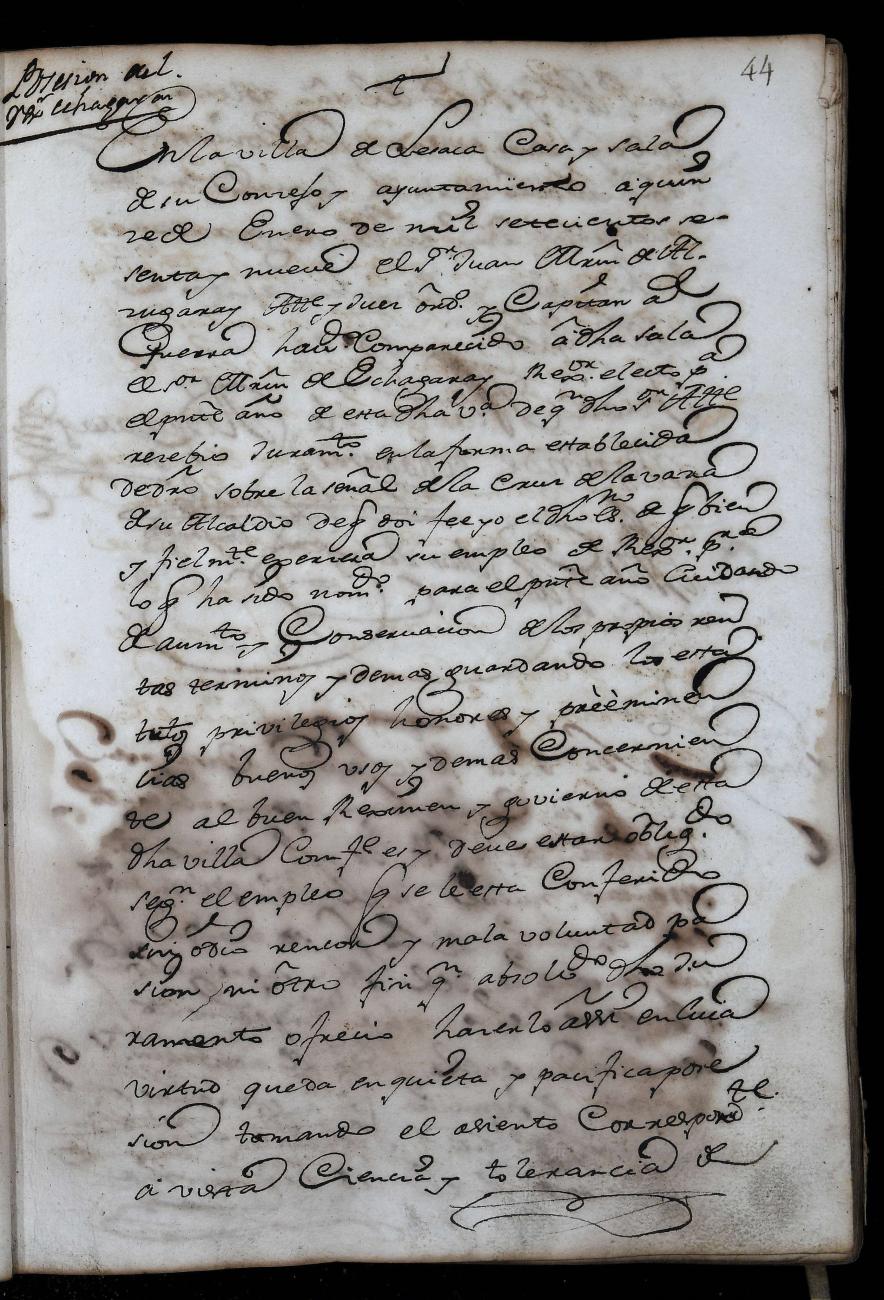 Posesion del
Rexr. echagaray
44
En la villa de Lesaca Casa y sala
de su Conzejo y ayuntamiento a quin
ze de Enero de mil setecientos se-
senta y nueve el Sr. Juan Mrñ de Al-
zugaray Alle y Juez ordo. y Capitan a
Guerra havdo. Comparecido a dha sala
el sor Mrñ de Echagaray Rexor. electo pa
el pnte año de esta dha va. de qn dho sor Alle
rezebio Juramto. en la forma establecida
de dro sobre la señal de la Cruz de la vara
de su Alcaldio de q doi fee yo el dho esno. de q bien
y fielmte. exercera su empleo de Rexor.
lo q ha sido nomdo. para el pnte año Cuidando
de aumto y Conservacion de los propios ren
tas terminos y demas guardando los esta
tutos privilegios honores y prèèminen
cias buenos usos y demas Concernien
te al buen Reximen y govierno de esta
dha villa Comfe es y deve estar obligdo.
segn. el empleo q se le esta Conferido
sin odio rencor y mala voluntad pa
sion ni otro fin qn absoldo dho Ju
ramento ofrecio hazerlo assi en cuia
virtud queda en quieta y pacifica pose
sion tomando el asiento Correspondte.
a vista Ciencia y tolerancia de